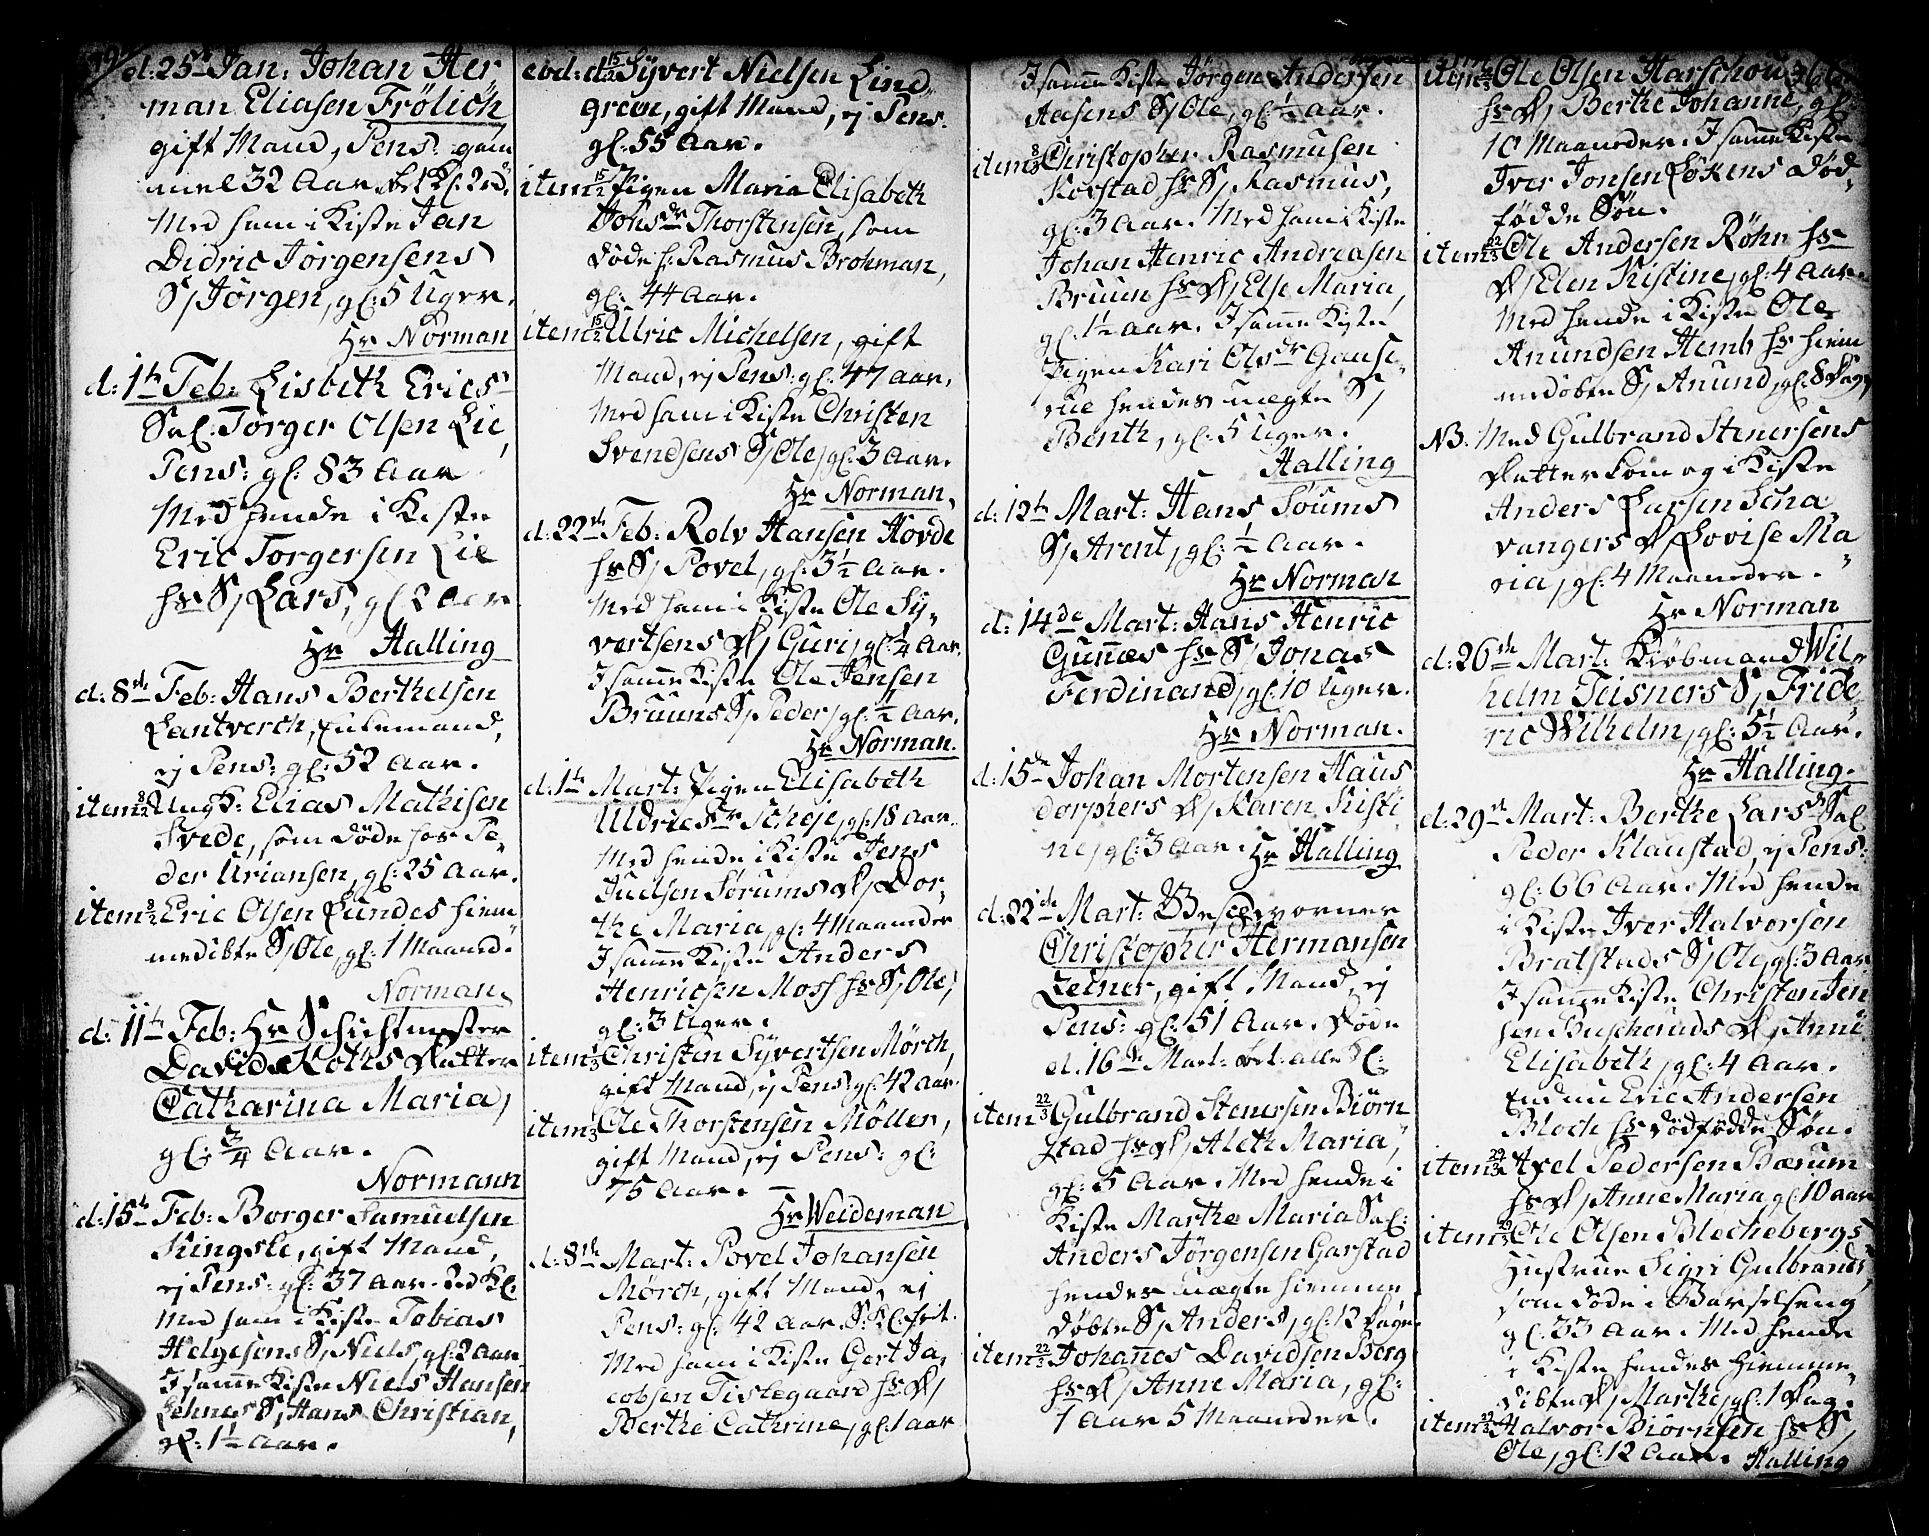 d: 25de Jan: Johan Her-
man Eliasen Frölich
gift Mand, Pens: gam
mel 32 Aar
Med ham i Kiste Jan
Didric Jörgensens
S/ Jörgen, gl: 5 Uger.
Hr Norman
d: 1te Feb: Lisbeth Erics
Sal: Torger Olsen Lie,
Pens: gl: 83 Aar
Med hende i Kiste
Eric Torgersen Lie
hs S/ Lars, gl 2 Aar
Hr Halling
d: 8de Feb: Hans Berthelsen
Lantverch, Enkemand,
ej Pens: gl: 52 Aar.
item 8/2 Ungk: Elias Mathisen
Svede, som döde hos Pe-
der Uriansen, gl: 25 Aar.
item 8/2 Eric Olsen Lundes hiem
medöbte S/ Ole, gl: 1 Maaned.
Norman
d: 11te Feb: Hr Schichtmester
David Koths Datter
Catharina Maria,
gl: 3/4 Aar.
Normann
d: 15de Feb: Borger Samuelsen
Kingsle, gift Mand,
ej Pens: gl: 37 Aar.
Med ham i Kiste Tobias
Helgesens S/ Niels, gl: 2 Aar
I samme Kiste Niels Hansen
Lehnes S/ Hans Christian,
gl: 1½ Aar.
eod: d 15/2 Syvert Nielsen Lind
greve, gift Mand, ej Pens:
gl: 55 Aar.
item 15/2 Pigen Maria Elisabeth
Johsdr Thorstensen, som
döde h: Rasmus Brohman,
gl: 44 Aar.
item 15/2 Ulric Michelsen, gift
Mand, ej Pens: gl: 47 Aar,
Med ham i Kiste Christen
Svendsens S/ Ole, gl: 3 Aar.
Hr Norman
d: 22de Feb: Rolv Hansen Hovde
hs S/ Povel, gl: 3½ Aar.
Med ham i Kiste Ole Sy-
vertsens D/ Guri, gl: ¼ Aar.
I samme Kiste Ole Jensen
Bruuns S/ Peder, gl: ½ Aar.
Hr Norman.
d: 1te Mart: Pigen Elisabeth
Uldricsdr Scheje, gl: 18 Aar.
Med hende i Kiste Jens
Juelsen Sörums D/ Dor-
the Maria, gl: 4 Maaneder
I samme Kiste Anders
Henricsen Moss hs S/ Ole,
gl: 3 Uger.
item 1/3 Christen Syvertsen Mörch,
gift Mand, ej Pens: gl: 42 Aar.
item 1/3 Ole Thorstensen Möller,
gift Mand, ej Pens: gl:
75 Aar.
Hr Weideman
d: 8de Mart: Povel Johansen
Mörch, gift Mand, ej
Pens: gl: 42 Aar.
Med ham i Kiste Gert Ja-
cobsen Tislegaard hs D/
Berthe Cathrine, gl: 1 Aar
I samme Kiste Jörgen Andersen
Aasens S/ Ole, gl: ½ Aar.
item 8/3 Christopher Rasmusen
Korstad hs S/ Rasmus,
gl: 3 Aar. Med ham i Kiste
Johan Henric Andreasen
Bruun hs D/ Else Maria,
gl: 1½ Aar. I samme Kiste
Pigen Kari Olsdr Gause-
rue hendes uægte S/
Benth, gl: 5 Uger.
Halling
d: 12te Mart: Hans Soums
S/ Arent, gl: ½ Aar.
Hr Norman
d: 14de Mart: Hans Henric
Gunnæs hs S/ Jonas
Ferdinand, gl: 10 Uger.
Hr Norman.
d: 15de Johan Mortensen Haus
dorphers D/ Karen Kisti
ne, gl: 3 Aar. Hr Halling
d: 22de Mart:
Christopher Hermansen
Zeiner, gift Mand, ej
Pens: gl: 51 Aar. Döde
d. 16de Mart: bet: alle Kl:
item 22/3 Gulbrand Stenersen Biörn
stad hs D/ Aleth Maria,
gl: 5 Aar. Med hende i
Kiste Marthe Maria Sal:
Anders Jörgensen Garstad
hendes uægte hiemme
döbte S/ Anders, gl: 12 Dage
item 22/3 Johannes Davidsen Berg
hs D/ Anne Maria, gl:
7 Aar 5 Maaneder.
item 22/3 Ole Olsen Harschou
hs D/ Berthe Johanne, gl:
10 Maaneder. I samme Kiste
Iver Jonsen Lökens Död-
födde Sön.
item 22/3 Ole Andersen Röhn hs
D/ Elen Kistine, gl: 4 Aar.
Med hende i Kiste Ole
Anundsen Hemb hs hiem
medöbte S/ Anund, gl: 8 Dage
NB. Med Gulbrand Stenersens
Datter kom og i Kiste
Anders Larsen Scha-
vangers D/ Lovise Ma
ria, gl: 4 Maaneder.
Hr Norman
d: 26de Mart: Kiöbmand Wil-
helm Teisners S/ Fride
ric Wilhelm, gl: 5½ Aar.
Hr Halling.
d: 29de Mart: Berthe Larsdr Sal:
Peder Klaustad, ej Pens:
gl: 66 Aar. Med hende
i Kiste Iver Halvorsen
Bratstads S/ Ole, gl: 3 Aar
I samme Kiste Christen Jen
sen Buscheruds D/ Anne
Elisabeth, gl: 4 Aar.
Endnu Eric Andersen
Bloch hs dödfödde Sön.
item 29/3 Axel Pedersen Bærum
hs D/ Anne Maria gl 10 Aar
item 29/3 Ole Olsen Blechebergs
Hustrue Sigri Gulbrands
som döde i Barselseng
gl: 33 Aar. Med hende
i Kiste hendes hiemme-
döbte D/ Marthe, gl: 1 Dag.
item 29/3 Halvor Biörnsen hs S/
Ole, gl: 12 Aar. Halling